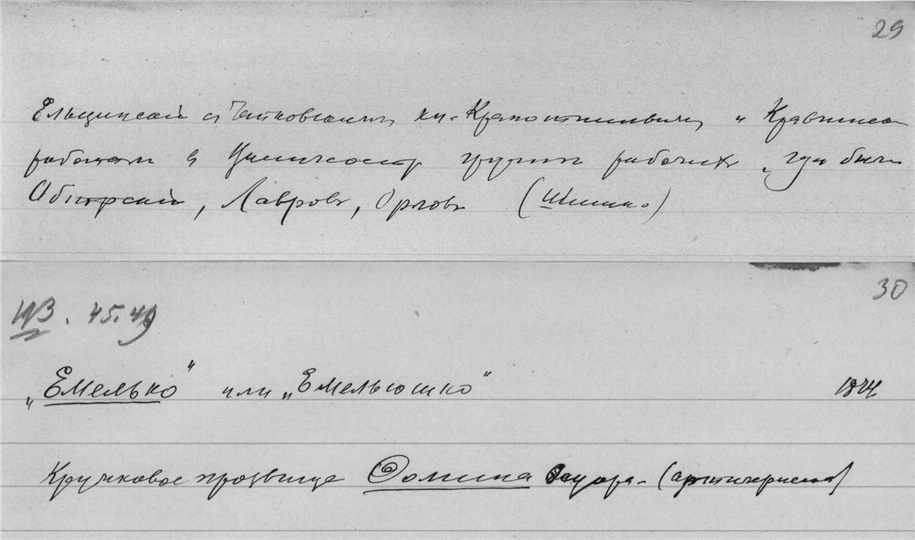 29
Ельцинский с Чайковским, кн. Крапоткиным, и Кравчинск
работал в группы рабочих, где были
Обнорский, Лавров, Орлов (Шишко)
30
ИВ. 45.49
„Емелько” или „Емельюшко” 1874
Кружковое прозвище Фомина (артиллериста)